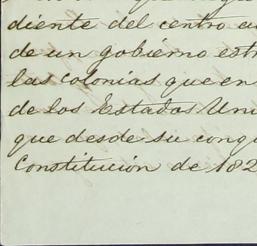 diente del centro
de un gobierno
las colonias que en
de los Estados Uni
que desde su conq
Constitución de 182